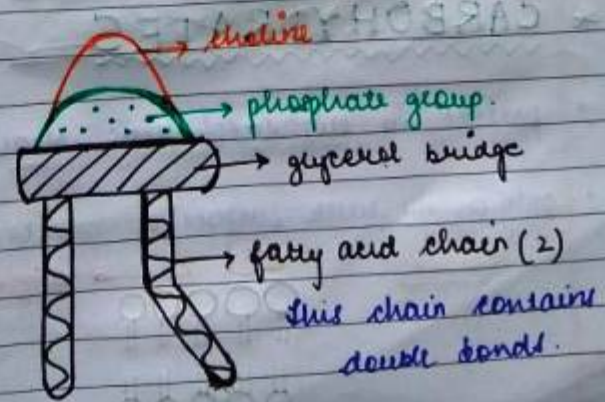 choline
phosphate group.
glycerol bridge
fatty acid chain (2)
This chain contains
double bonds.